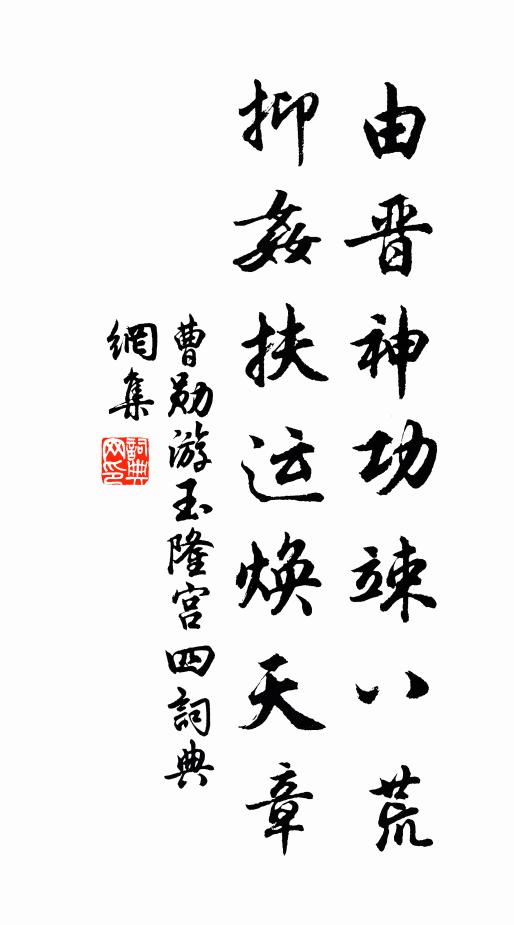 由晋神功竦八荒
抑姦扶运焕天章
曹勋游玉隆宫四詞典
網集
詞典网印